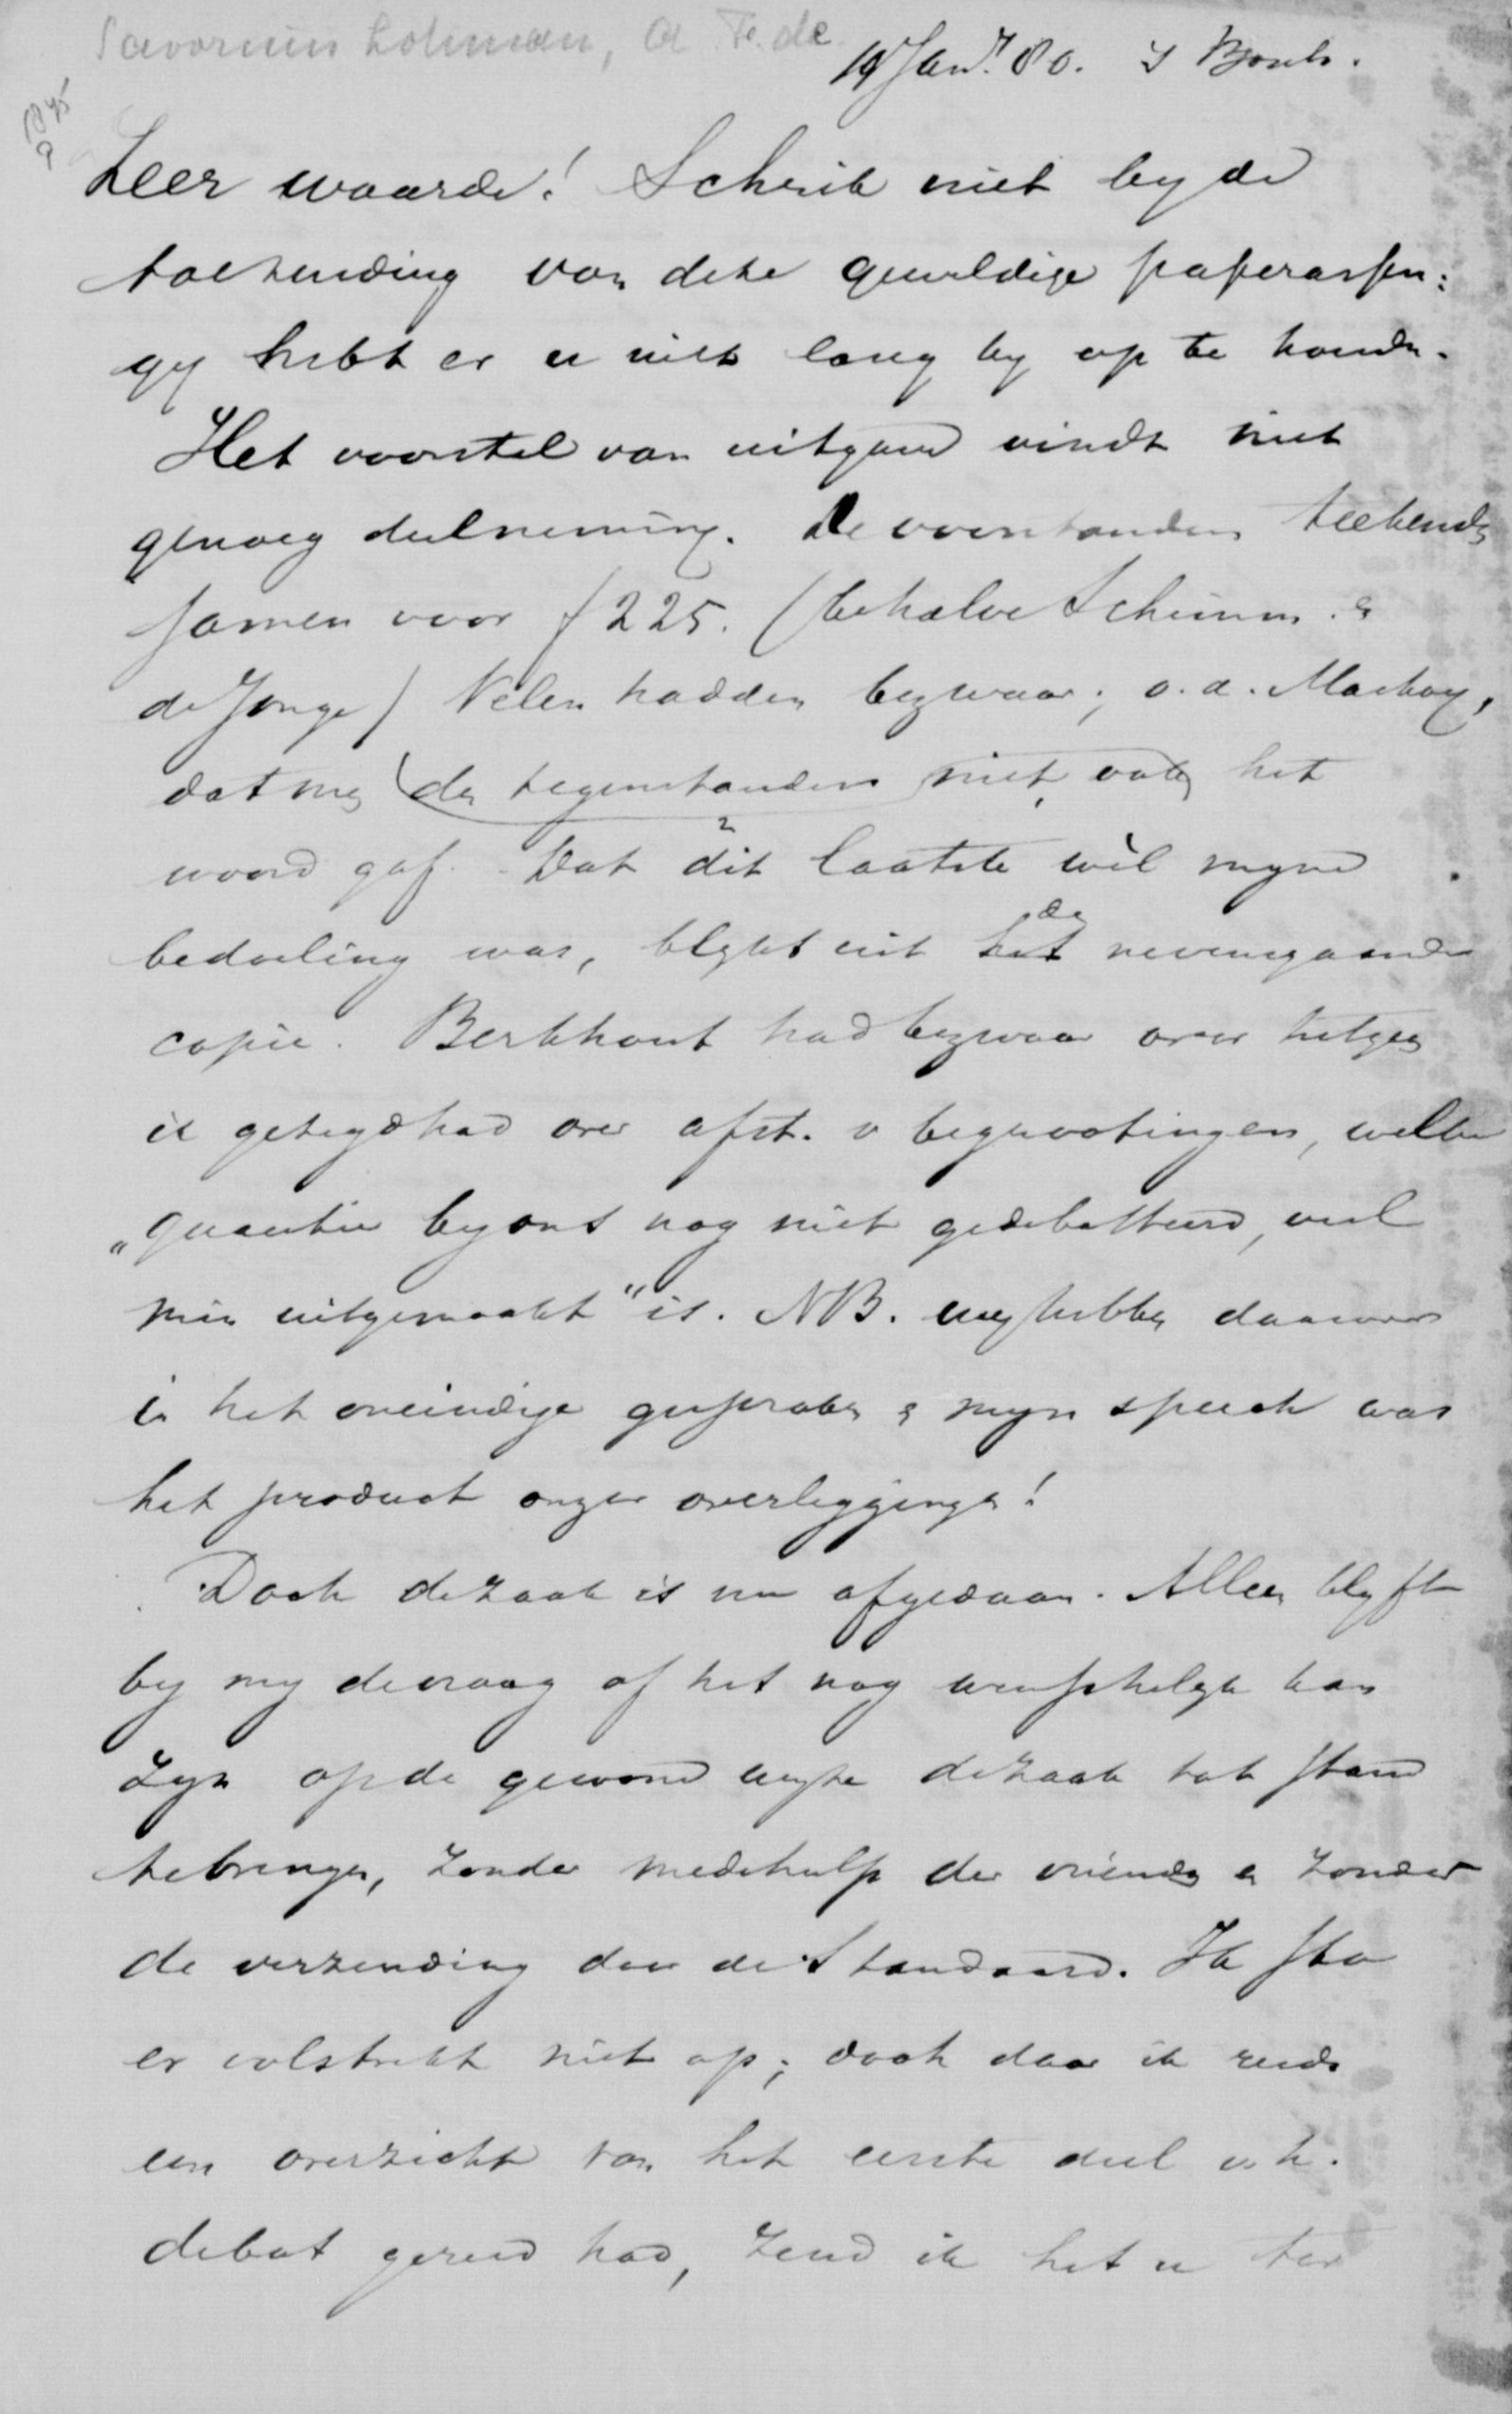 Savornin Lohman, A. F. de
19 Jan. 80. 's Bosch.
Zeer waarde! Schrik niet by de
toezending van deze geweldige paperassen:
gy hebt er u niet lang by op te houden.
Het voorstel van uitgave vindt niet
genoeg deelneming. De voorstanders teekenden
samen voor f 225. (behalve Schimm. &
de Jonge) Velen hadden bezwaar; o.a. Mackay,
dat men de tegenstanders niet ook het
woord gaf. Dat dit laatste wèl myne
bedoeling was, blykt uit de nevensgaande
copie. Berkhout had bezwaar over hetgeen
ik gezegd had over afst. v begrootingen, welke
„quaestie by ons nog niet gedebatteerd, veel
min uitgemaakt" is. NB. wy hebben daarover
in het oneindige gesproken & myn speech was
het product onzer overleggingen!
Doch de zaak is nu afgedaan. Alleen blyft
by my de vraag of het nog wenschelyk kan
zyn op de gewone wyze de zaak tot stand
te brengen, zonder medehulp der vrienden en zonder
de verzending door de Standaard. Ik sta
er volstrekt niet op; doch daar ik reeds
een overzicht van het eerste deel v. h.
debat gereed had, zend ik het u ter